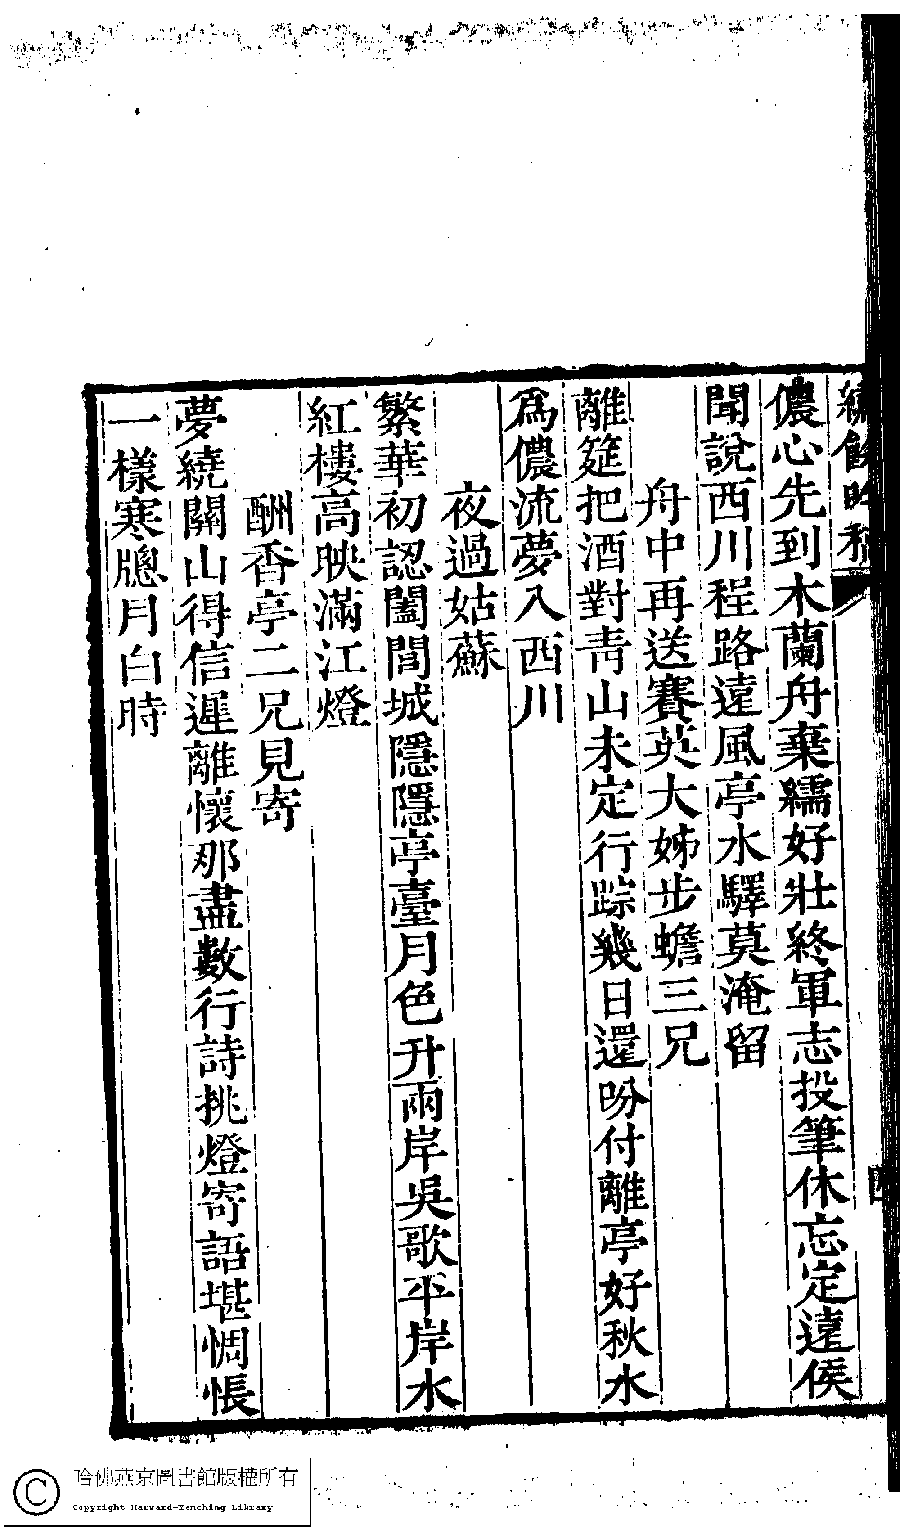 繡餘吟稿
儂心先到木蘭舟棄繻好壯終軍志投筆休忘定遠侯
聞說西川程路遠風亭水驛莫淹留
舟中再送賽英大姊步蟾三兄
離筵把酒對青山未定行踪幾日還吩付離亭好秋水
爲儂流夢入西川
夜過姑蘇
繁華初認闔閭城隱隱亭臺月色升兩岸吳歌平岸水
紅樓高映滿江燈
酬香亭二兄見寄
夢繞關山得信遲離懷那盡數行詩挑燈寄語堪惆悵
一樣寒牕月白時
哈佛燕京圖書館版權所有
Copyright Harvard-Yenching Library